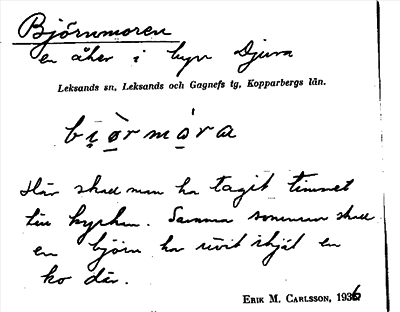 Björnmoren
en åker i byn Djura
Leksands sn, Leksands och Gagnefs tg, Kopparbergs län.
bi̯ò̱rmó̱ra
Här skall man ha tagit timmret
till kyrkan. Samma sommar skall
en björn ha rivit ihjäl en
ko där.
ERIK M. CARLSSON, 1936